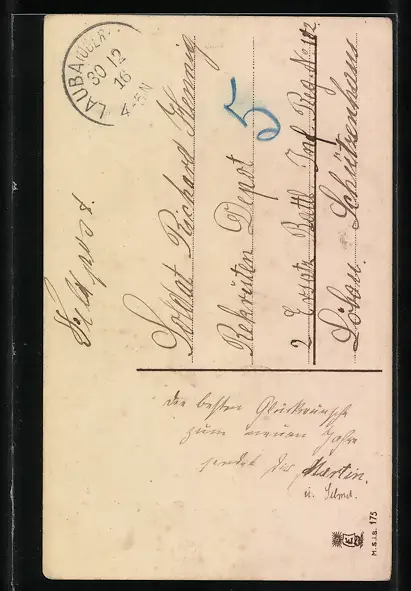 LAUBA (OBERL.)
30 12
16
4-5N
Feldpost.
Soldat Richard Hennig
Rekruten Depot
5
2 Ersatz Batl Inf. Reg. No 102
Löbau. Schützenhaus
Die besten Glückwünsche
zum neuen Jahre
sendet Dir Martin.
u.
M.S.i.B. 175